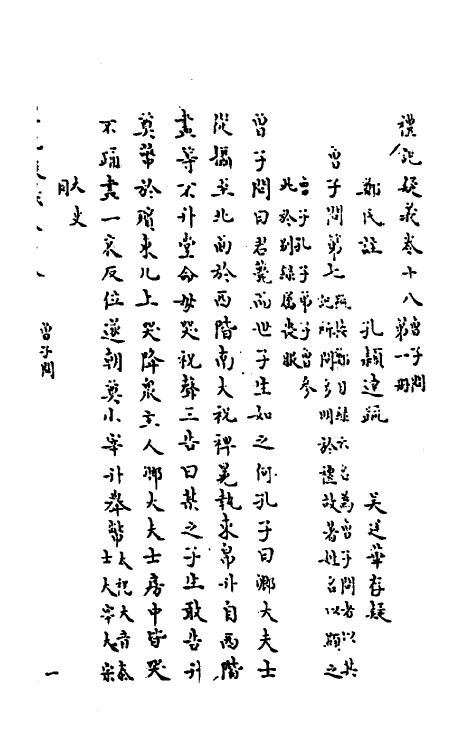 禮記疑義卷十八曾子問第一冊
鄭氏註 孔穎達疏 吳廷華存疑
曾子問第七疏按鄭目錄云名為曾子問者以其記所問多明於禮故著姓名以顯之
曾子孔子弟子曾參此於別錄屬喪服
曾子問曰君薨而世子生如之何孔子曰卿大夫士
從攝主北面於西階南大祝裨冕執束帛升自西階
盡等不升堂命毋哭祝聲三告曰某之子生敢告升
奠幣於殯東几上哭降衆主人卿大夫士房中皆哭
不踊盡一哀反位遂朝奠小宰升舉幣太祝大音泰士大宰大宗
大史同
曾子問
一